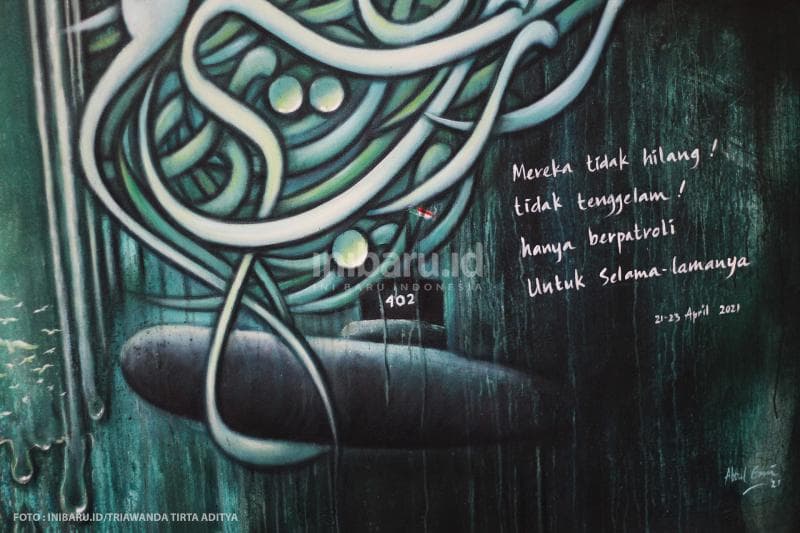 Mereka tidak hilang!
tidak tenggelam!
hanya berpatroli
Untuk Selama-lamanya
21-23 April 2021
inibaru.id
INI BARU INDONESIA
402
21
FOTO : INIBARU.ID/TRIAWANDA TIRTA ADITYA